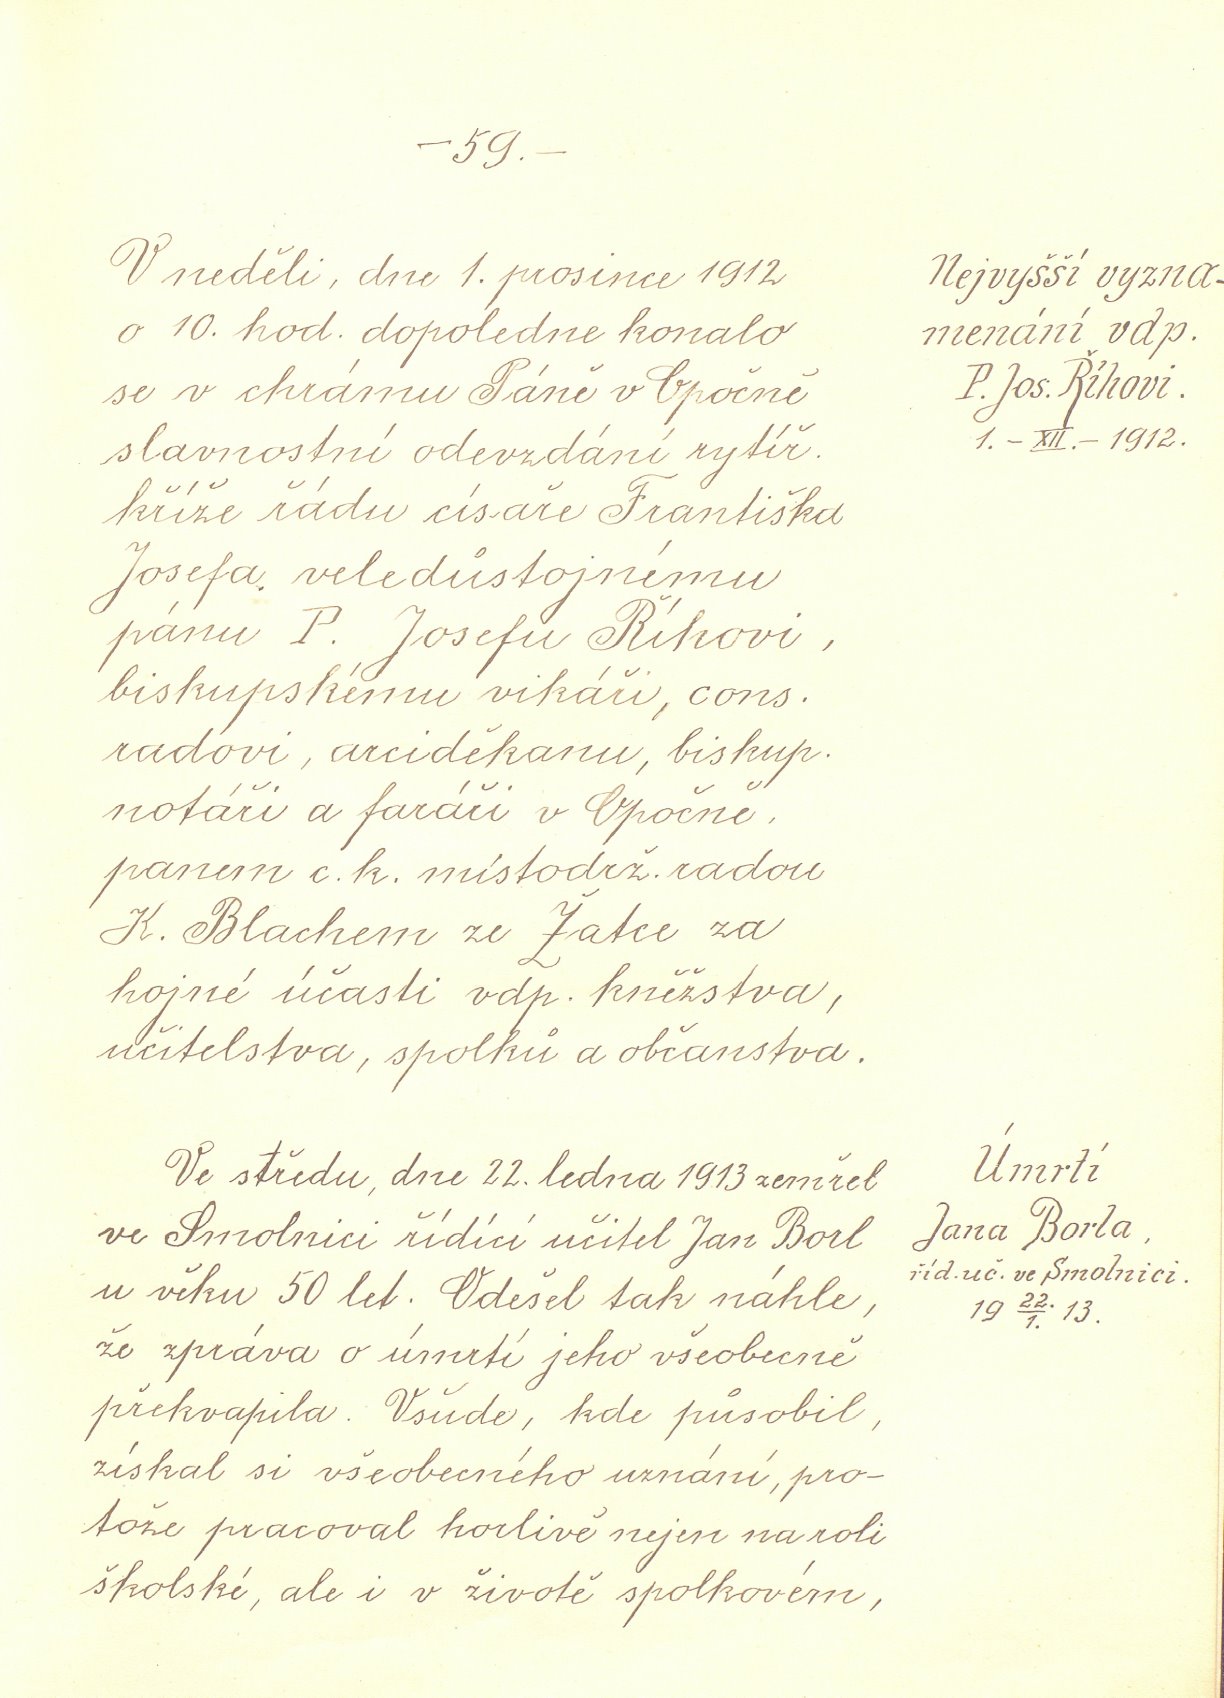 – 59. –
V neděli, dne 1. prosince 1912
o 10. hod. dopoledne konalo
se v chrámu Páně v Opočně
slavnostní odevzdání rytíř.
kříže řádu císaře Františka
Josefa, veledůstojnému
pánu P. Josefu Říhovi,
biskupskému vikáři, cons.
radovi, arciděkanu, biskup.
notáři a faráři v Opočně,
panem c. k. místodrž. radou
K. Blachem ze Žatce za
hojné účasti vdp. kněžstva,
učitelstva, spolků a občanstva.
Nejvyšší vyzna-
menání vdp.
P. Jos. Říhovi.
1. – XII. – 1912.
Ve středu, dne 22. ledna 1913 zemřel
ve Smolnici řídící učitel Jan Borl
u věku 50 let. Odešel tak náhle,
že zpráva o úmrtí jeho všeobecně
překvapila. Všude, kde působil,
získal si všeobecného uznání, pro-
tože pracoval horlivě nejen na roli
školské, ale i v životě spolkovém,
Úmrtí
Jana Borla,
říd. uč. ve Smolnici.
19 22./1. 13.